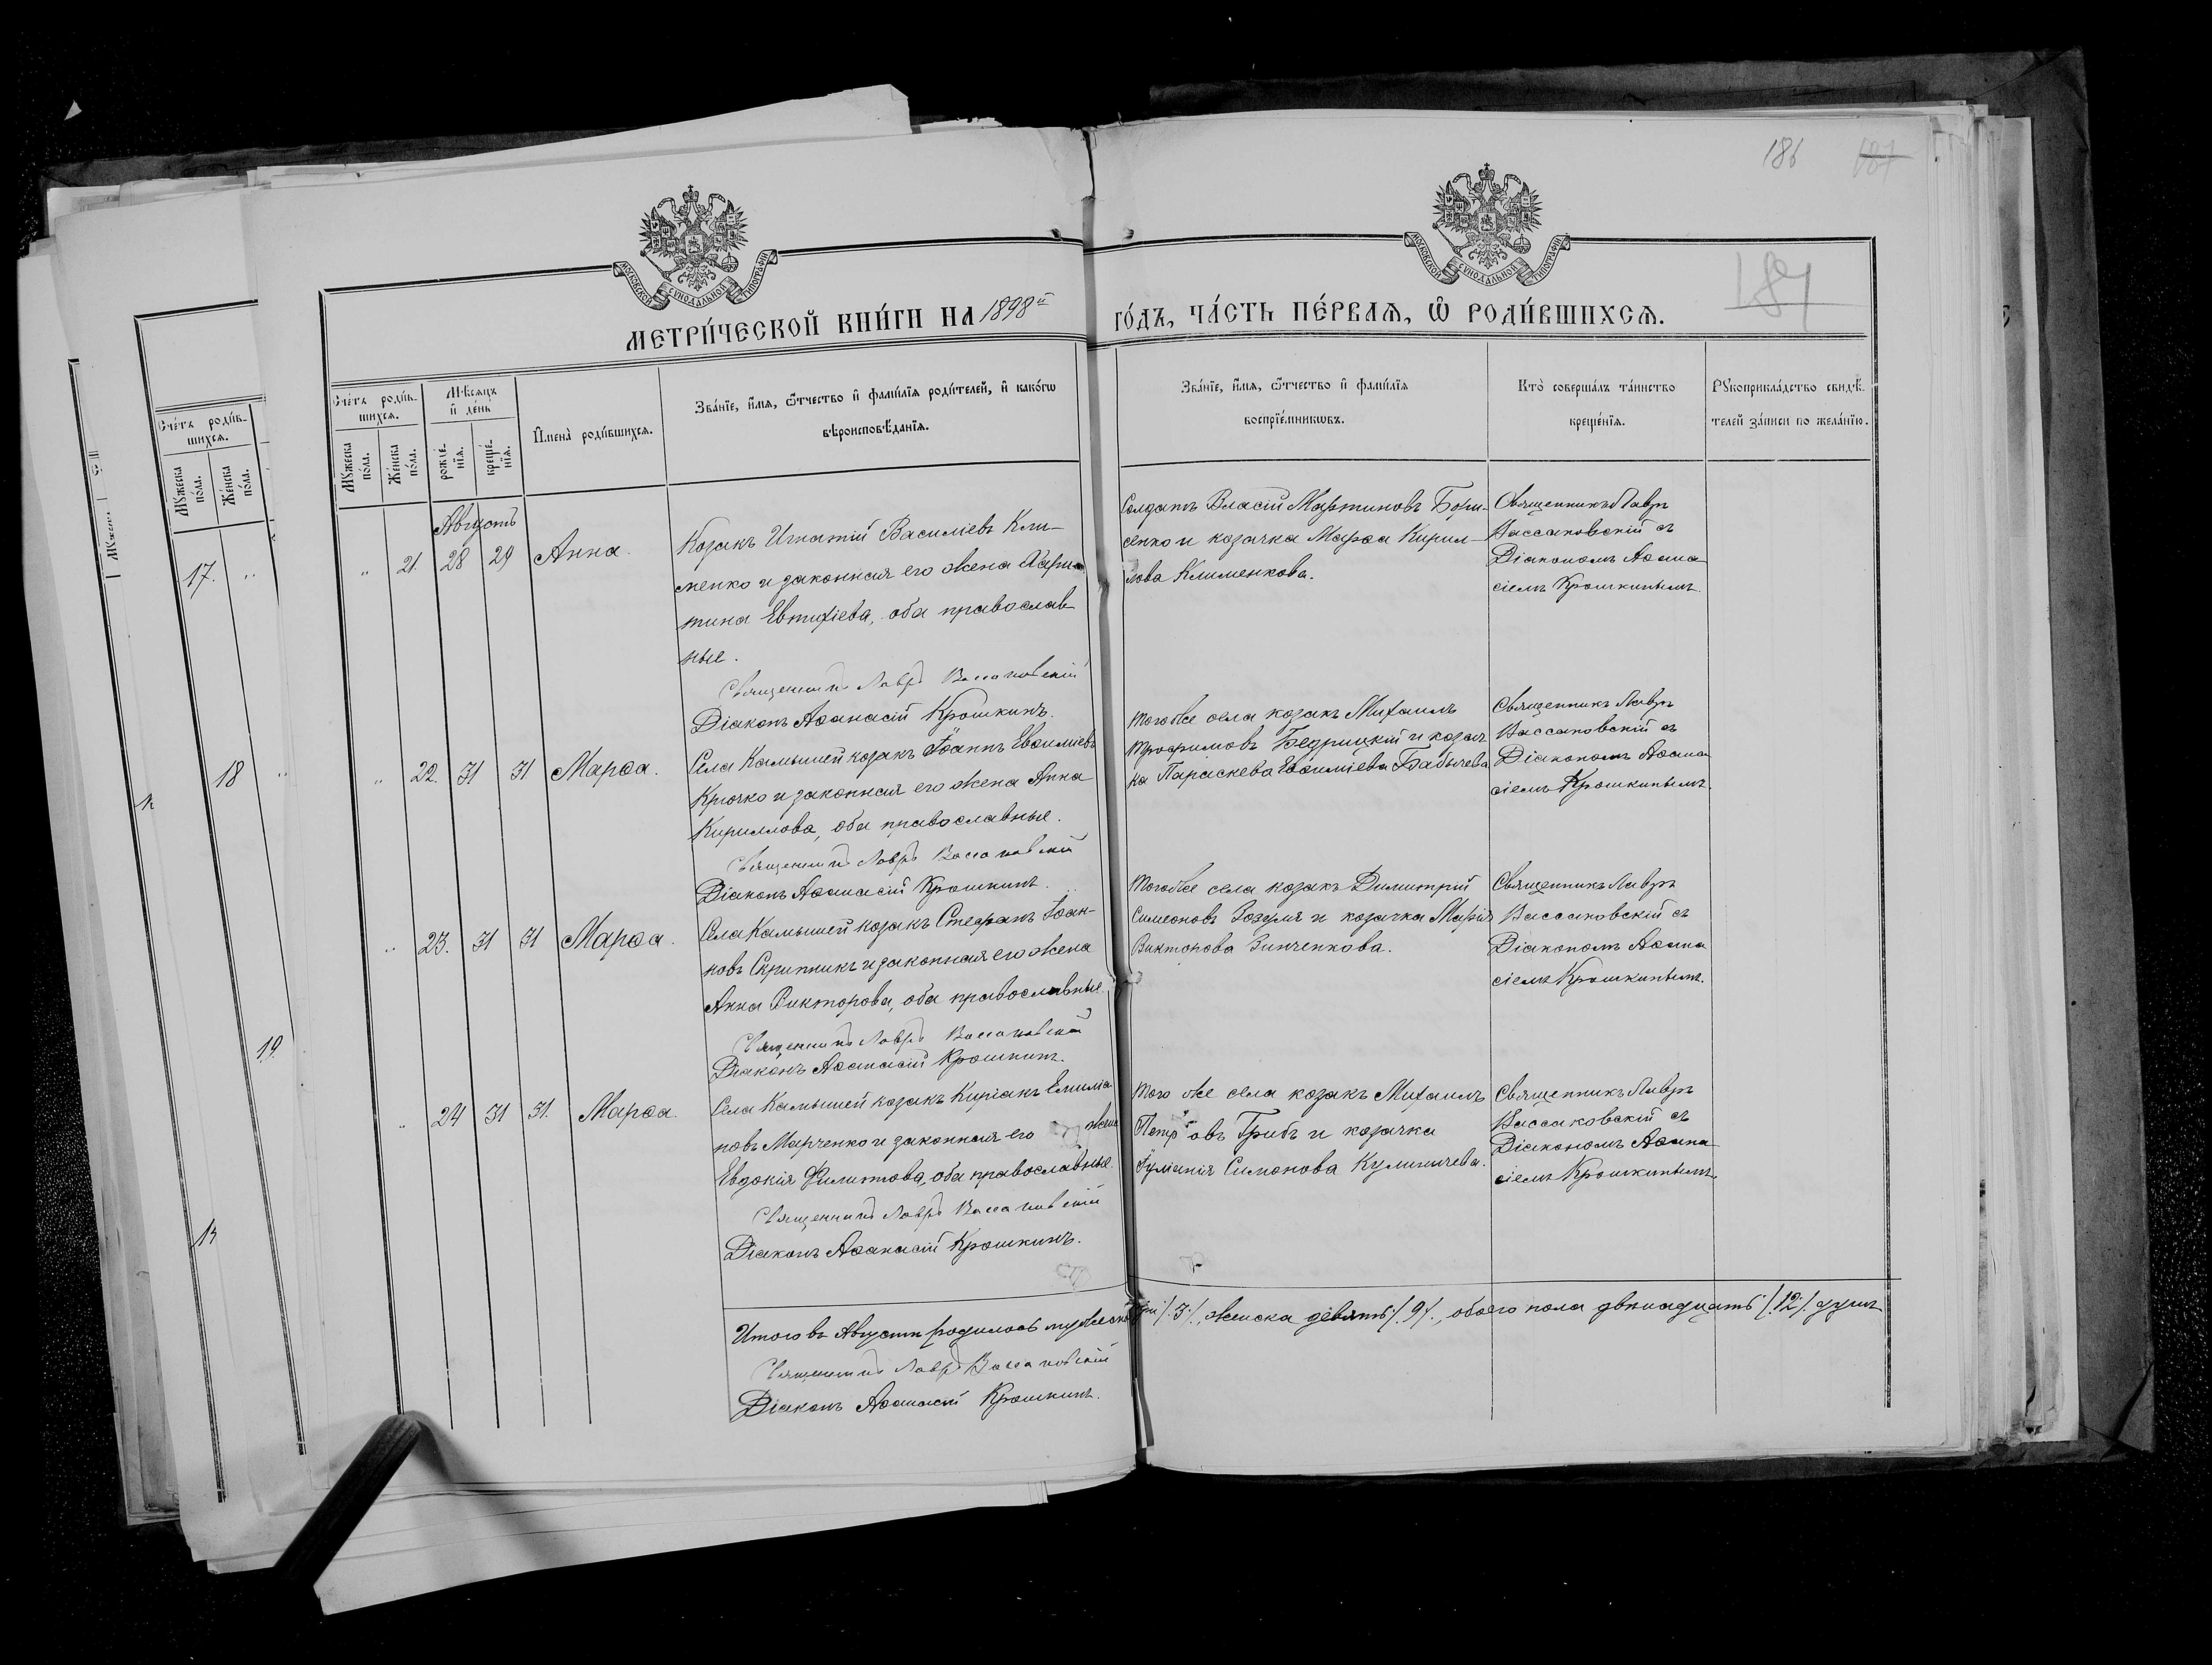 186
187
187
МОСКОВСКОЙ СѴНОДАЛЬНОЙ ТИПОГРАФІИ
МОСКОВСКОЙ СѴНОДАЛЬНОЙ ТИПОГРАФІИ
МЕТРИ́ЧЕСКОЙ КНИ́ГИ НА 1898й ГО́ДЪ, ЧА́СТЬ ПЕ́РВАѦ, Ѿ РОДИ́ВШИХСѦ.
Сче́тъ роди́в-
шихсѧ.
Мꙋ́жеска
по́ла.
Же́нска
по́ла.
Мѣ́сяцъ
и҆ де́нь
рожде́-
нїѧ.
креще́-
нїѧ.
И҆мена̀ роди́вшихсѧ.
Зва́нїе, и҆́мѧ, ѻ҆́тчество и҆ фами́лїѧ роди́телей, и҆ како́гѡ
вѣроисповѣ́данїѧ.
Зва́нїе, и҆́мѧ, ѻ҆́тчество и҆ фами́лїѧ
воспрїе́мникѡвъ.
Кто̀ соверша́лъ та́инство
креще́нїѧ.
Рꙋкоприкла́дство свидѣ́-
телей за́писи по жела́нїю.
Сче́тъ роди́в-
шихсѧ.
Мꙋ́жеска
по́ла.
Же́нска
по́ла.
17. "
18 "
19.
Августъ
" 21. 28 29 Анна.
Козакъ Игнатій Василіевъ Кли-
менко и законная его жена Хари-
тина Евтихіева, обα православ
ные.
Священникъ Лавръ Вассаковскій
Діаконъ Аѳанасій Крошкинъ.
Солдатъ Власій Мартиновъ Бори-
сенко и козачка Марѳа Кирил-
лова Клименкова.
Священникъ Лавръ
Вассаковскій съ
Діакономъ Аѳана
сіемъ Крошкинымъ.
" 22. 31 31 Марѳа.
Села Камышей козакъ Іоаннъ Евѳиміевъ
Крючко и законная его жена Анна
Кириллова, оба православные.
Священникъ Лавръ Вассаковскій
Діаконъ Аѳанасій Крошкинъ.
Того же села козакъ Михаилъ
Трофимовъ Бедрицкій и козач
ка Параскева Евѳиміева Бабычева
Священникъ Лавръ
Вассаковскій съ
Діакономъ Аѳана
сіемъ Крошкинымъ.
" 23. 31 31 Марѳа.
Села Камышей козакъ Стефанъ Іоан-
новъ Скрипникъ и законная его жена
Анна Викторова, оба православные.
Священникъ Лавръ Вассаковскій
Діаконъ Аѳанасій Крошкинъ.
Того же села козакъ Димитрій
Симеоновъ Зозуля и козачка Марія
Викторова Зинченкова.
Священникъ Лавръ
Вассаковскій съ
Діакономъ Аѳана
сіемъ Крошкинымъ.
" 24 31 31. Марѳа.
Села Камышей козакъ Киріакъ Емиліа
новъ Марченко и законная его жена
Евдокія Филиппова, оба православные.
Священникъ Лавръ Вассаковскій
Діаконъ Аѳанасій Крошкинъ.
Того же села козакъ Михаилъ
Петровъ Грибъ и козачка
Іуліанія Симонова Кулиничева.
Священникъ Лавръ
Вассаковскій съ
Діакономъ Аѳана
сіемъ Крошкинымъ.
Итого въ Августѣ родилось мужеска три /.3/., женска девять /.9/., обоего пола двѣнадцать /.12/. душъ
Священникъ Лавръ Вассаковскій
Діаконъ Аѳанасій Крошкинъ.